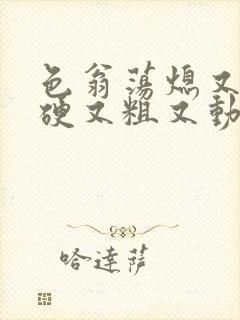 色翁荡熄又
硬又粗又動
哈達萨